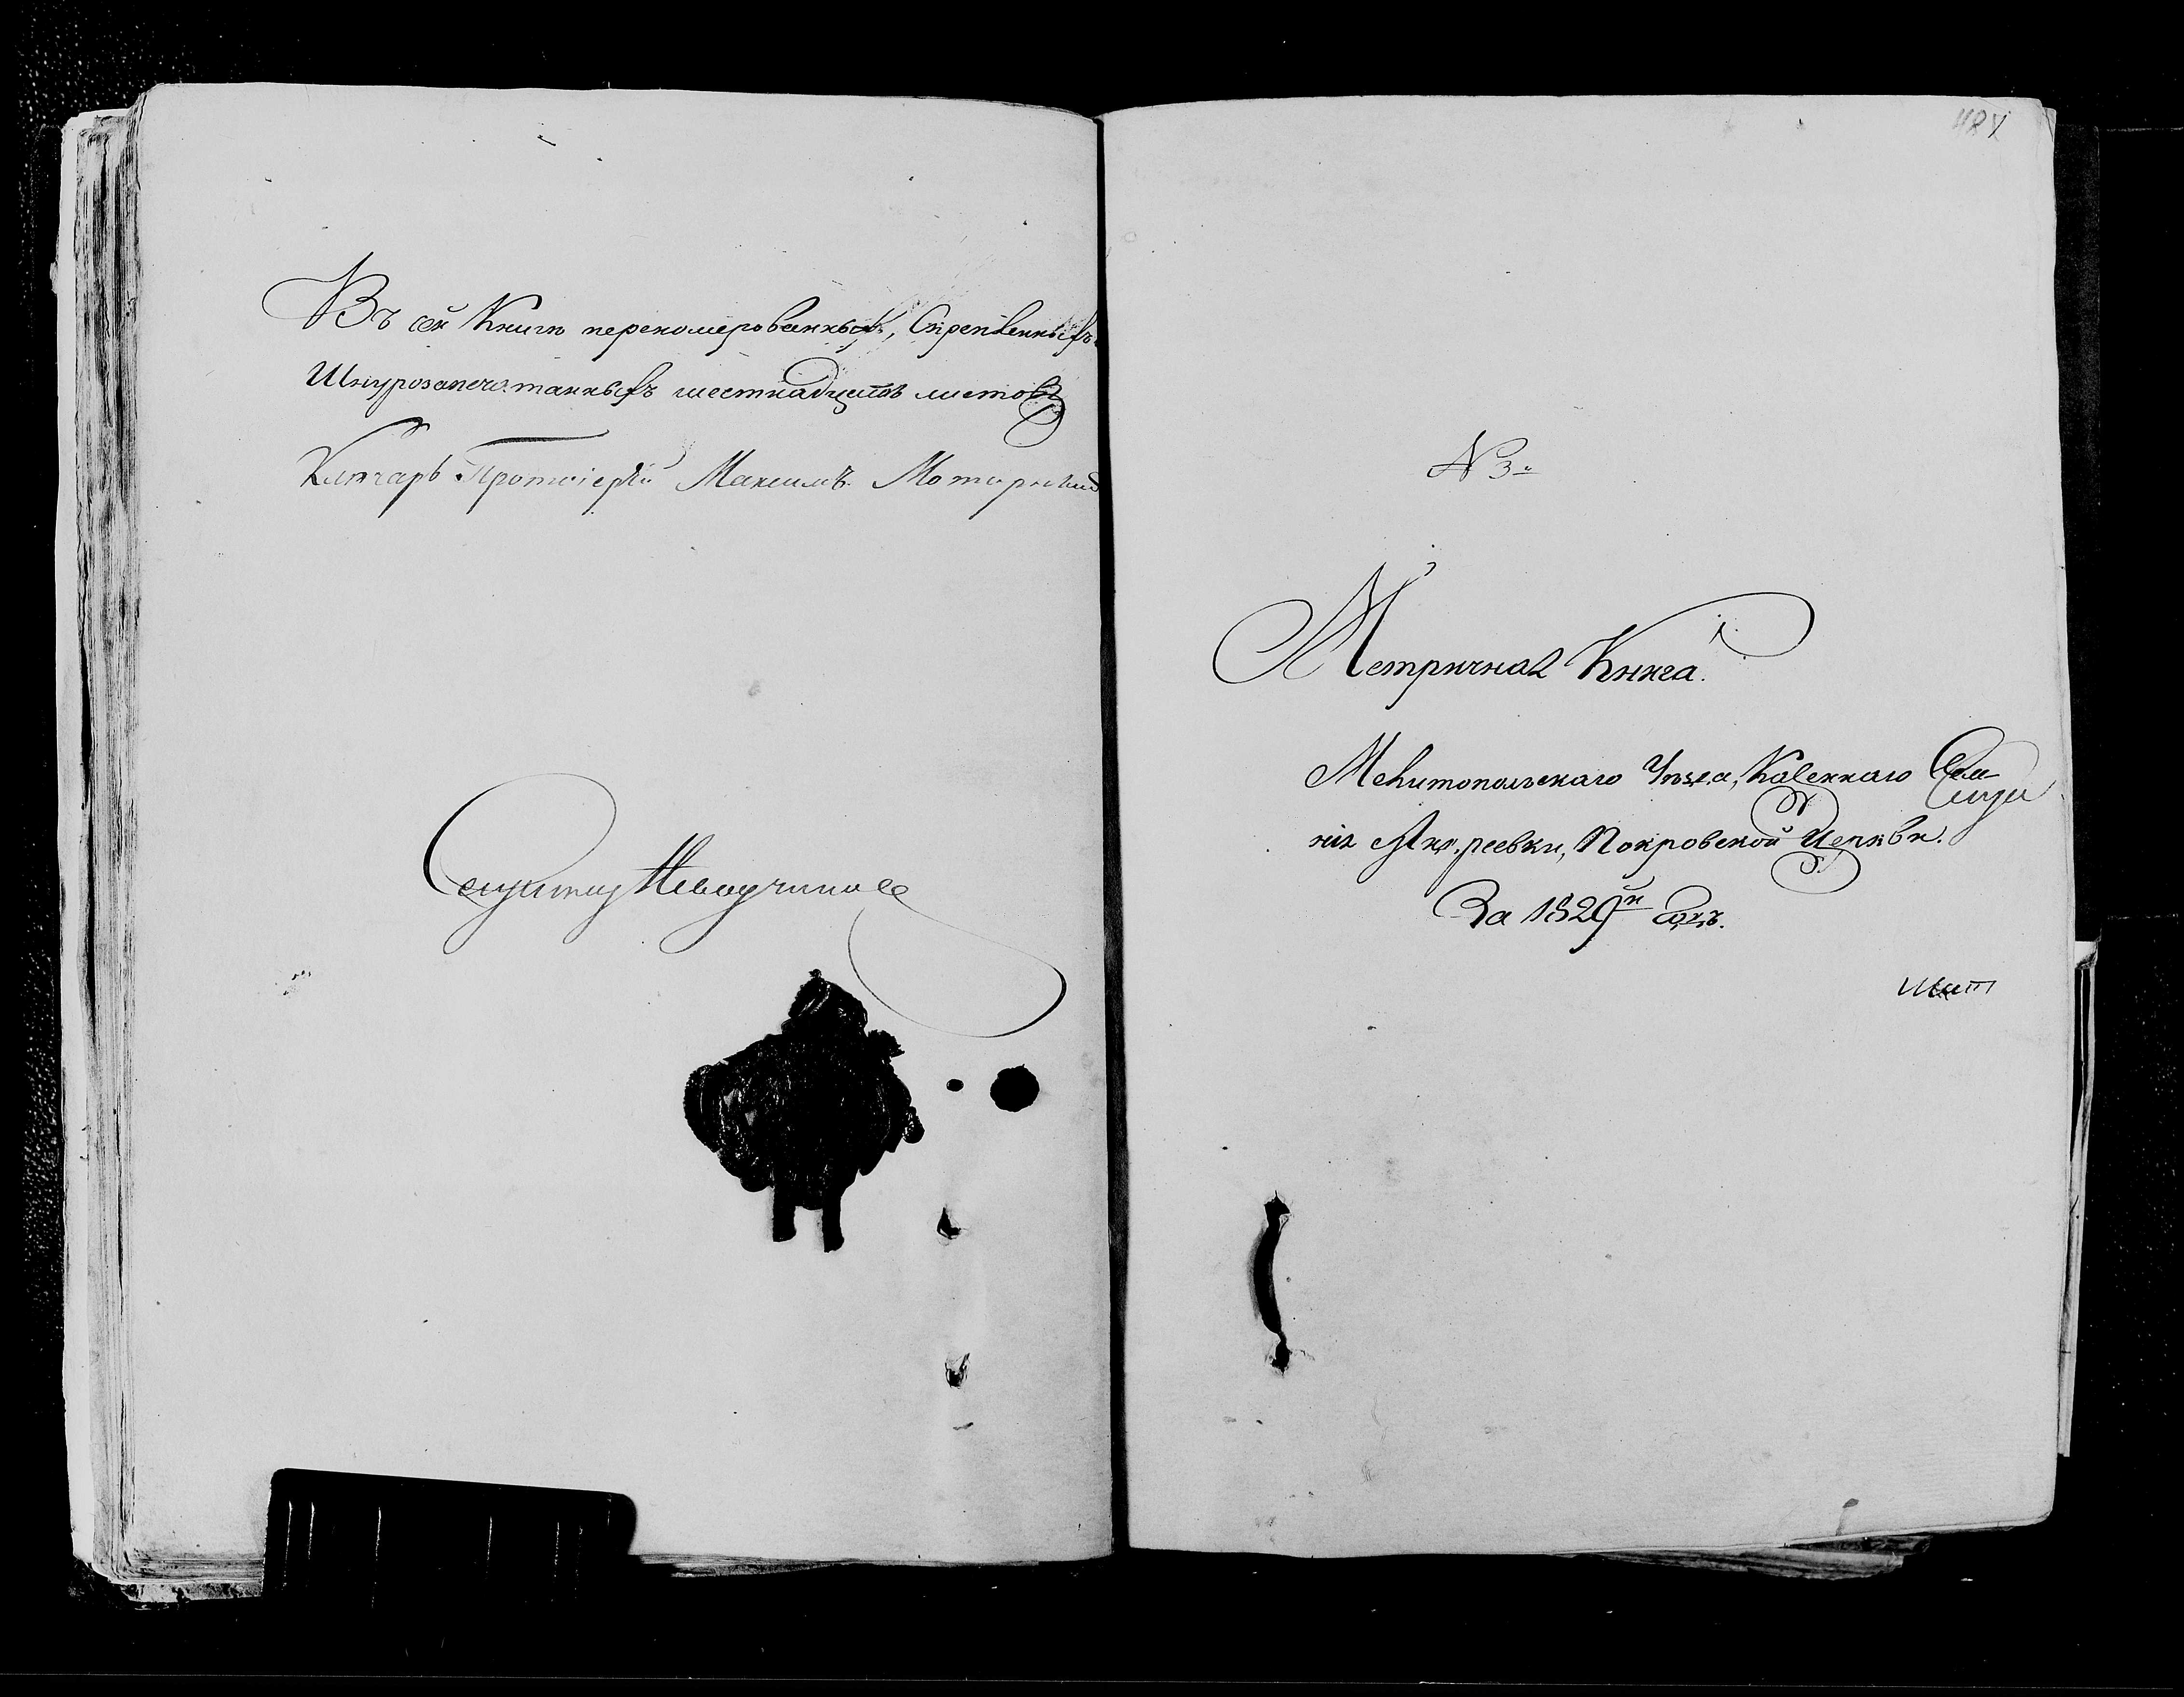 Въ сей Книгѣ переномерованныхъ, Скрепленныхъ
Шнурозапечатанныхъ шестнадцать листовъ
Ключарь Протоіерей Максимъ
N 3й
Метричная Книга.
Мелитопольскаго Уѣзда, Казеннаго Селе-
нія Андреевки, Покровской Церкви.
За 1829й Годъ.